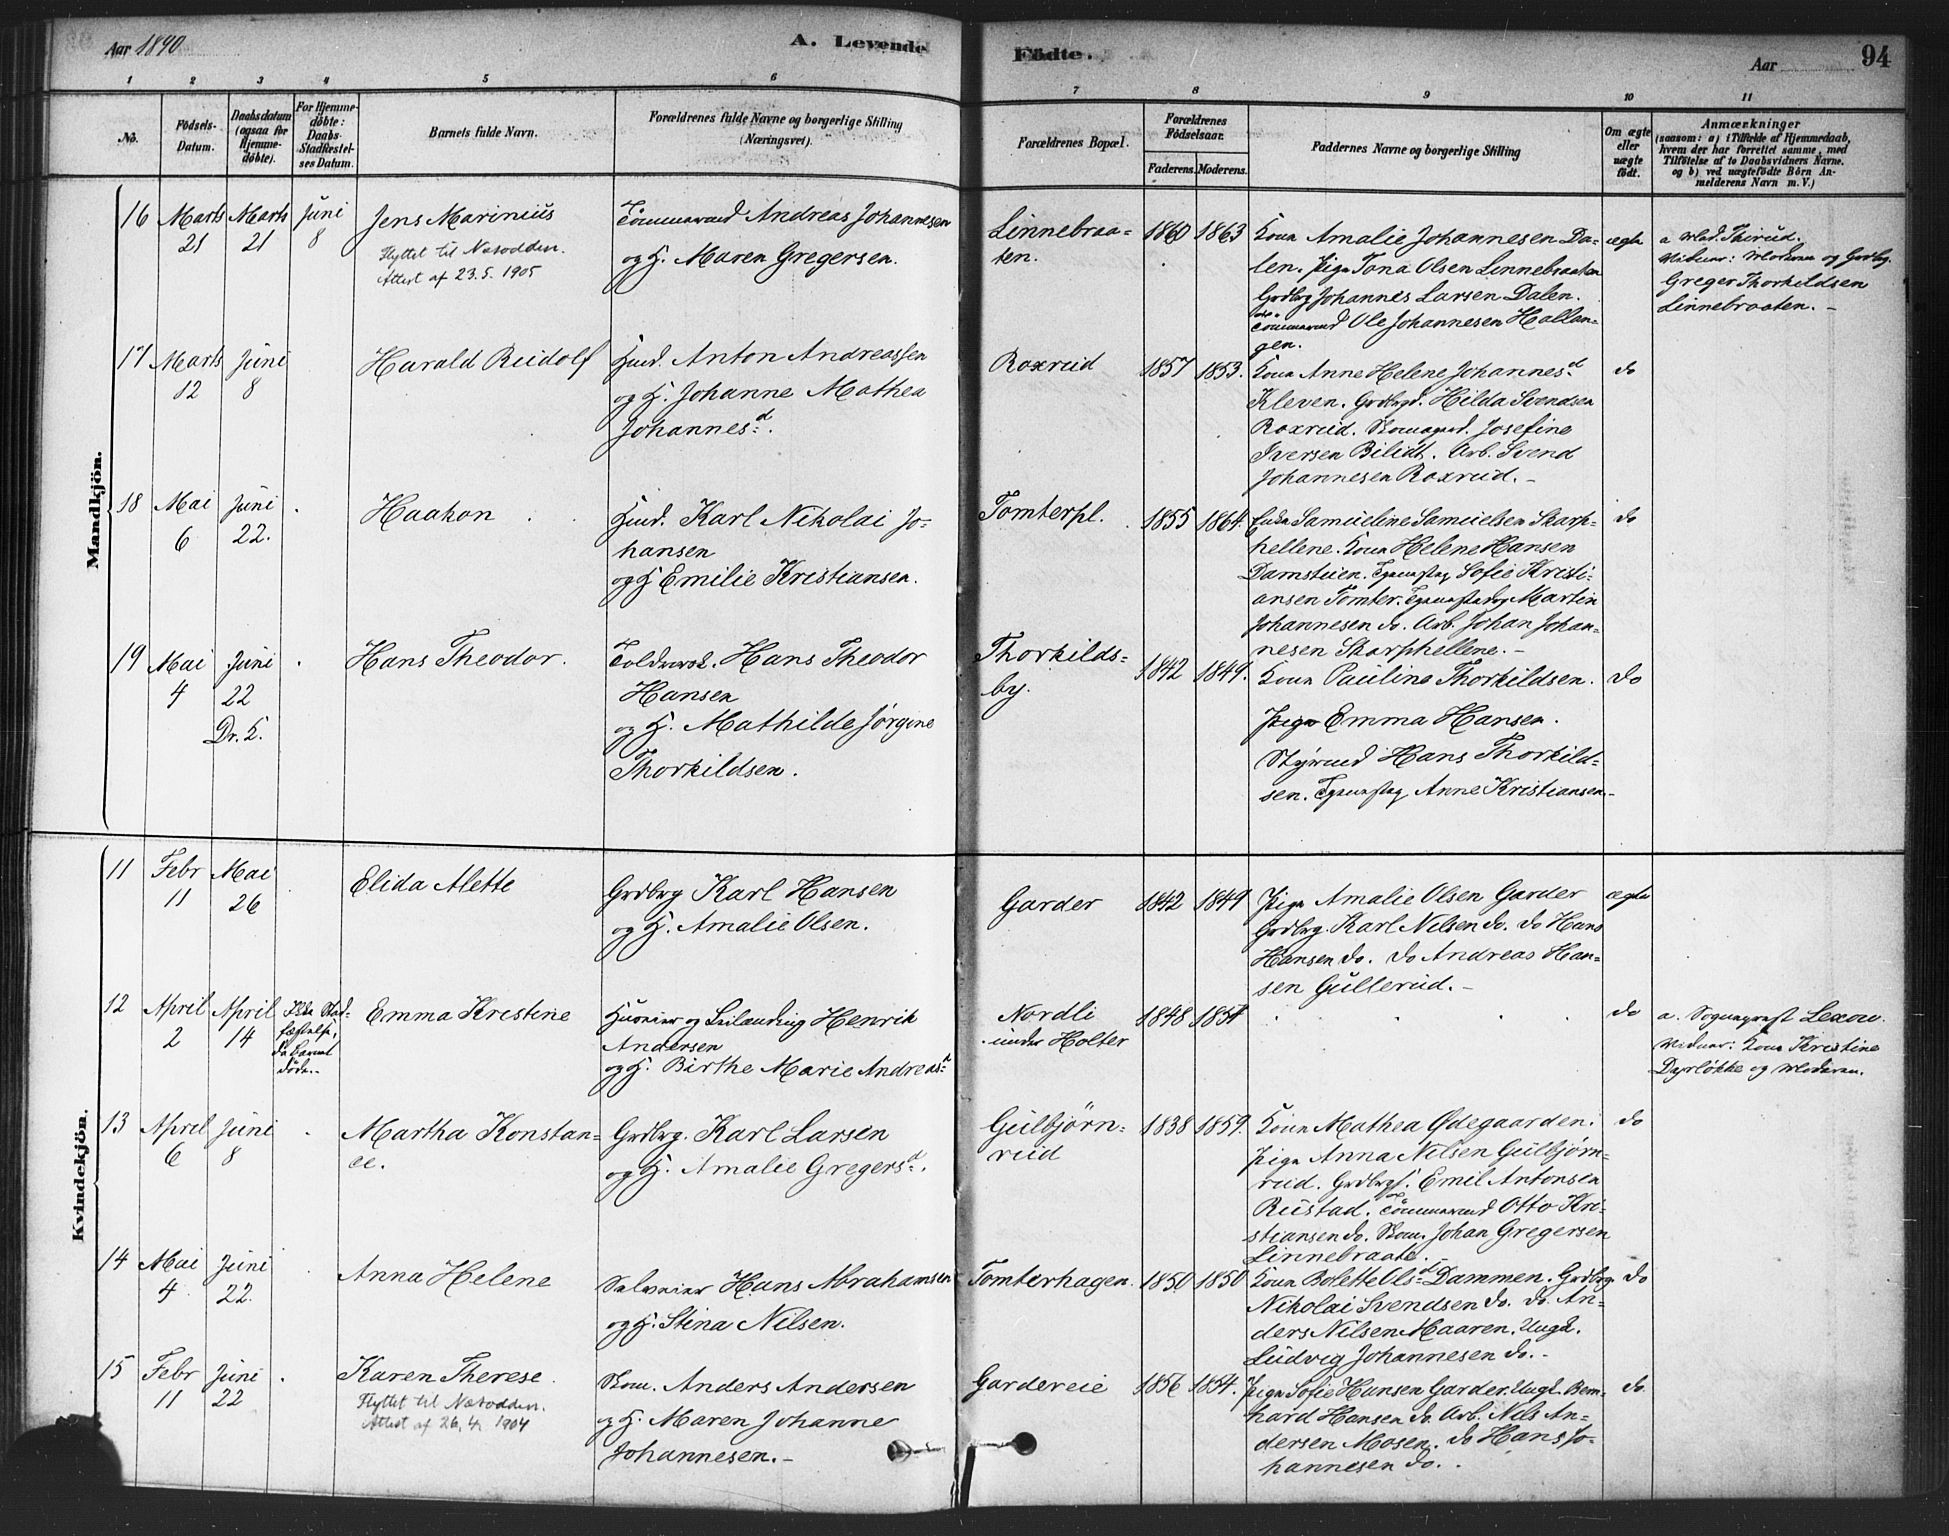 Aar 1890
A. Levende
Födte.
Aar
94
1 2 3 4 5 6 7 8 9 10 11
No.
Födsels-
Datum.
Daabsdatum
(ogsaa for
Hjemme-
döbte).
For Hjemme-
döbte:
Daabs-
Stadfæstel-
ses Datum.
Barnets fulde Navn.
Forældrenes fulde Navne og borgerlige Stilling
(Næringsvei).
Forældrenes Bopæl.
Forældrenes
Födselsaar.
Faderens. Moderens.
Faddernes Navne og borgerlige Stilling
Om ægte
eller
uægte
födt.
Anmærkninger
(saasom: a) i Tilfælde af Hjemmedaab,
hvem der har forrettet samme, med
Tilföielse af to Daabsvidners Navne.
og b) ved uægtefödte Börn An-
melderens Navn m. V.)
Mandkjön.
16 Marts 21
Marts 21
Juni 8
Jens Marinius
Flyttet til Nesodden.
Attest af 23.5.1905
Tømmermd Andreas Johannesen
og H. Maren Gregersen.
Linnebraa-
ten.
1860 1863
Kona Amalie Johannesen Da-
len. Pige Tona Olsen Linnebraaten
Grdbrg Johannes Larsen Dalen.
Tømmermd Ole Johannesen Hallan-
gen.
ægte
a
Vidner: Moderen og Grdbrg.
Greger Thorkildsen
Linnebraaten. -
17 Marts 12
Juni 8
Harald Rudolf
Husmd. Anton Andreassen
og H. Johanne Mathea
Johannesd.
Roxrud
1857 1853.
Kona Anne Helene Johannesd
Kleven. Grdbrgd. Hilda Svendsen
Roxrud. Josefine
Iversen Bilidt. Arb. Svend
Johannesen Roxrud. -
do
18 Mai 6
Juni 22.
Haakon
Husmd. Karl Nikolai Jo-
hansen
og H Emilie Kristiansen.
Tomterpl.
1855 1864.
Enke Samueline Samuelsen Skarp-
hellene. Kona Helene Hansen
Damstuen. Sofie Kristi-
ansen Tomter. Martin
Johannesen do. Arb. Johan Johan-
nesen Skarphellene. -
do
19 Mai 4
Juni 22
Dr. L.
Hans Theodor.
Hans Theodor
Hansen
og H. Mathilde Jørgine
Thorkildsen.
Thorkilds-
by.
1842 1849.
Kona Pauline Thorkildsen.
Pige Emma Hansen.
Styrmd Hans Thorkild-
sen. Anne Kristiansen. -
do
Kvindekjön.
11 Febr 11
Mai 26
Elida Alette
Grdbrg Karl Hansen
og H. Amalie Olsen.
Garder
1842 1849
Pige Amalie Olsen Garder
Grdbrg. Karl Nilsen do. do Hans
Hansen do. do Andreas Han-
sen Gullerud. -
ægte
12 April 2
April 14
Ikke Stad-
fæstelse,
da Barnet
døde. -
Emma Kristine
Huseier og Henrik
Andersen
og H. Birthe Marie Andreasd
Nordli
under Holter
1848 1854
do
a. Sogneprest Lexow.
Vidner: Kona Kristine
Dyrløkke og Moderen.
13 April 6
Juni 8
Martha Konstan-
ce.
Grdbrg. Karl Larsen
og H. Amalie Gregersd.
Gulbjørn-
rud
1838 1859.
Kona Mathea Ødegaarden.
Pige Anna Nilsen Gulbjørn-
rud. Grdbrgs. Emil Antonsen
Rustad. Tømmermd Otto Kri-
stiansen do. Skom. Johan Gregersen
Linnebraate. -
do
14 Mai 4
Juni 22.
Anna Helene
Selveier Hans Abrahamsen
og H. Stina Nilsen.
Tomterhagen.
1850 1850
Kona Bolette Olsd Dammen. Grdbrg
Nikolai Svendsen do. do. An-
ders Nilsen Maaren. Ungk.
Ludvig Johannesen do. -
do
15 Febr 11
Juni 22
Karen Therese
Flyttet til Nesodden.
Attest af 26.4.1904
Skom. Anders Andersen
og H. Maren Johanne
Johannesen. -
Gardereie
1856 1854.
Pige Sofie Hansen Garder. Ungk. Bern-
hard Hansen do Arb. Nils An-
dersen Mosen. do Hans Jo-
hannesen do.
do.